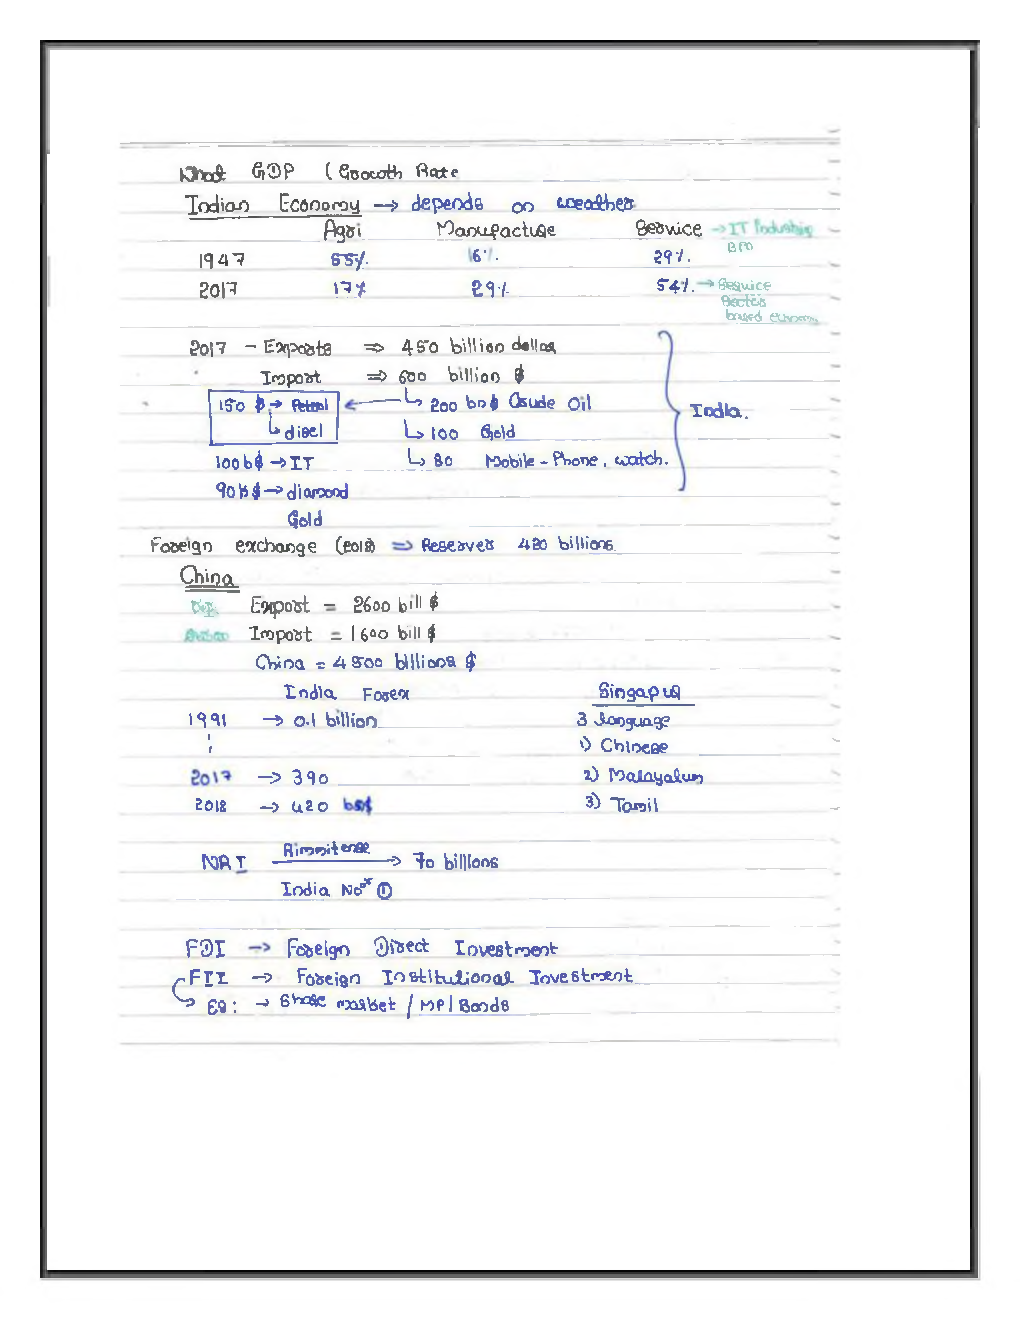 What GDP (Growth Rate
Indian Economy → depends on weather
Agri Manufacture Service → IT Industries
BPO
1947 55%. 6%. 29%.
2017 17% 29% 54%. → Service
Sector
based economy
2017 - Exports ⇒ 450 billion dollar
Import ⇒ 600 billion $
150 $ → Petrol ← ↳ 200 bn$ Crude Oil
↳ disel ↳ 100 Gold
India.
100b$ → IT ↳ 80 Mobile - Phone, watch.
90b$ → diamond
Gold
Foreign exchange (2018) ⇒ Reserves 420 billions
China
Export = 2600 bill $
Import = 1600 bill $
China = 4500 billions $
India Forex Singapur
1991 → 0.1 billion 3 language
1) Chinese
2017 → 390 2) Malayalum
2018 → 420 bn$ 3) Tamil
NRI Rimmitense → 70 billions
India No* ①
FDI → Foreign Direct Investment
FII → Foreign Institutional Investment
↳ Eg: → Share market / MP / Bonds